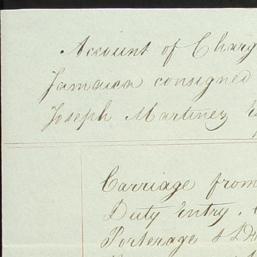 Account of Charg
Jamaica consigned
Joseph Martinez
Carriage from
Duty Entry.
Porterage &